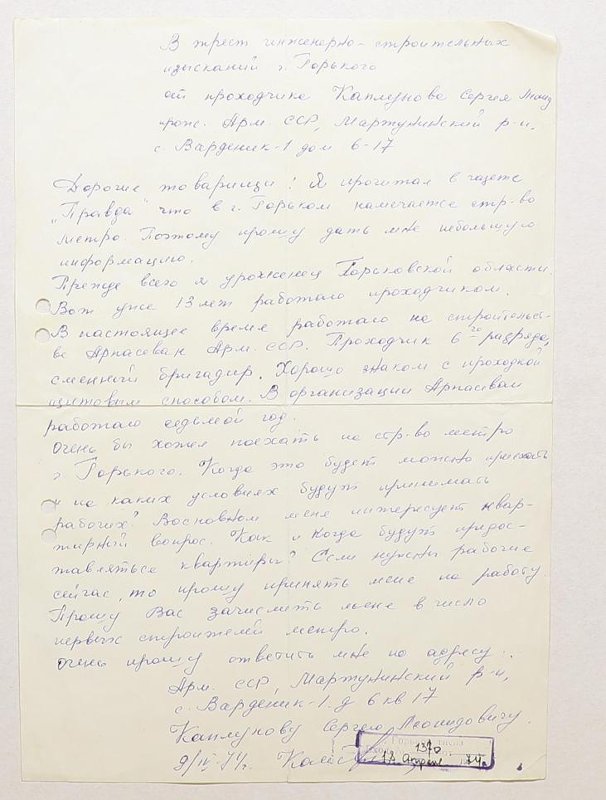 В трест инженерно-строительных
изысканий г. Горького
от проходчика Каплунова Сергея
прож. Арм. ССР, Мартунинский р-н,
с. Варденик-1 дом 6-17
Дорогие товарищи! Я прочитал в газете
"Правда" что в г. Горьком намечается стр-во
метро. Поэтому прошу дать мне небольшую
информацию.
Прежде всего я уроженец Горьковской области.
Вот уже 13 лет работаю проходчиком.
В настоящее время работаю на строительст-
ве Арпасеван Арм. ССР. Проходчик 6-го разряда,
сменный бригадир. Хорошо знаком с проходкой
щитовым способом. В организации Арпасеван
работаю седьмой год.
Очень бы хотел поехать на стр-во метро
г. Горького. Когда это будет можно приехать
и на каких условиях будут
рабочих? Восновном меня интересует квар-
тирный вопрос. Как и когда будут предос-
тавляться квартиры? Если нужны рабочие
сейчас, то прошу принять меня на работу.
Прошу Вас зачислить меня в число
первых строителей метро.
Очень прошу ответить мне по адресу:
Арм. ССР, Мартунинский р-н,
с. Варденик-1. д 6 кв 17
Каплунову Сергею Леонидовичу.
9/IV-74г.
1370
18 Апреля 74г.